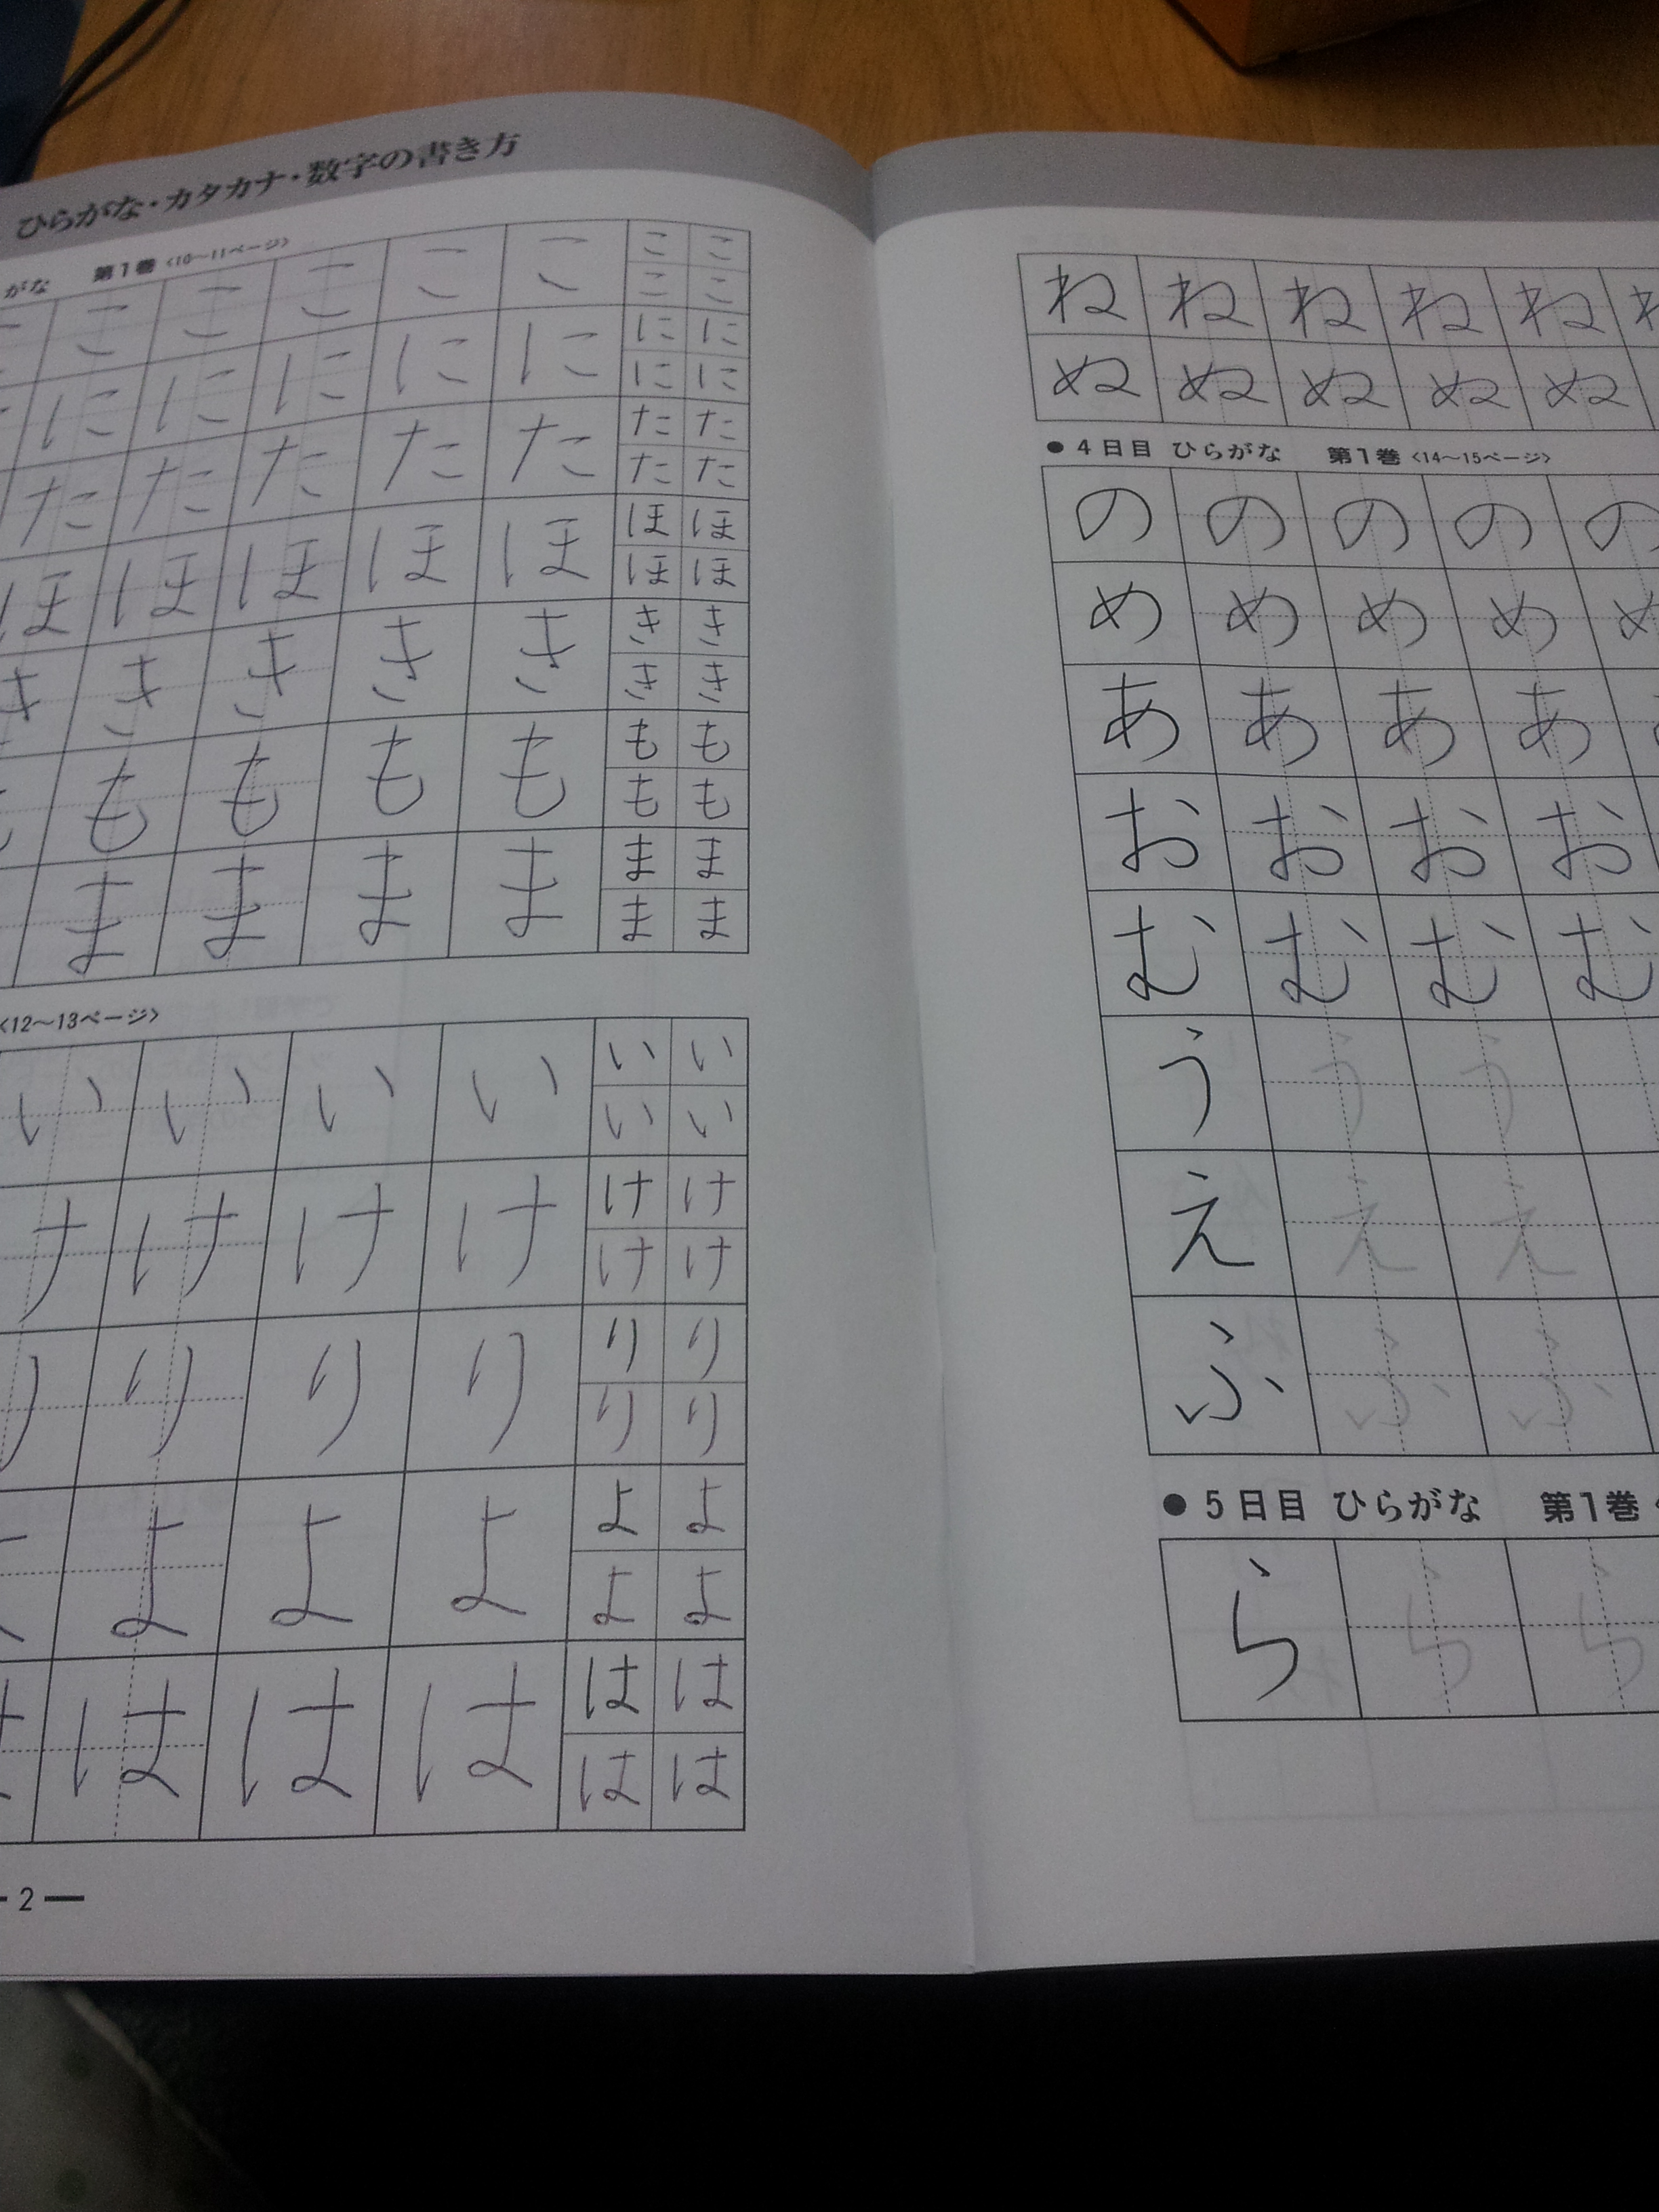 ひらがな・カタカナ・数字の書き方
がな 第1巻〈10〜11ページ〉
こ こ こ こ こ こ こ
こ こ
に に に に に に に
に に
た た た た た た た
た た
ほ ほ ほ ほ ほ ほ ほ ほ
ほ ほ
き き き き き き き き
き き
も も も も も も
も も
ま ま ま ま ま ま
ま ま
〈12〜13ページ〉
い い い い い い
い い
け け け け け け
け け
り り り り り り
り り
よ よ よ よ よ
よ よ
は は は は は
は は
2
ね ね ね ね ね
ぬ ぬ ぬ ぬ ぬ
● 4日目 ひらがな 第1巻〈14〜15ページ〉
の の の の の
め め め め め
あ あ あ あ
お お お お
む む む む
う う う
え え え
ふ ふ ふ
● 5日目 ひらがな 第1巻
ら ら ら